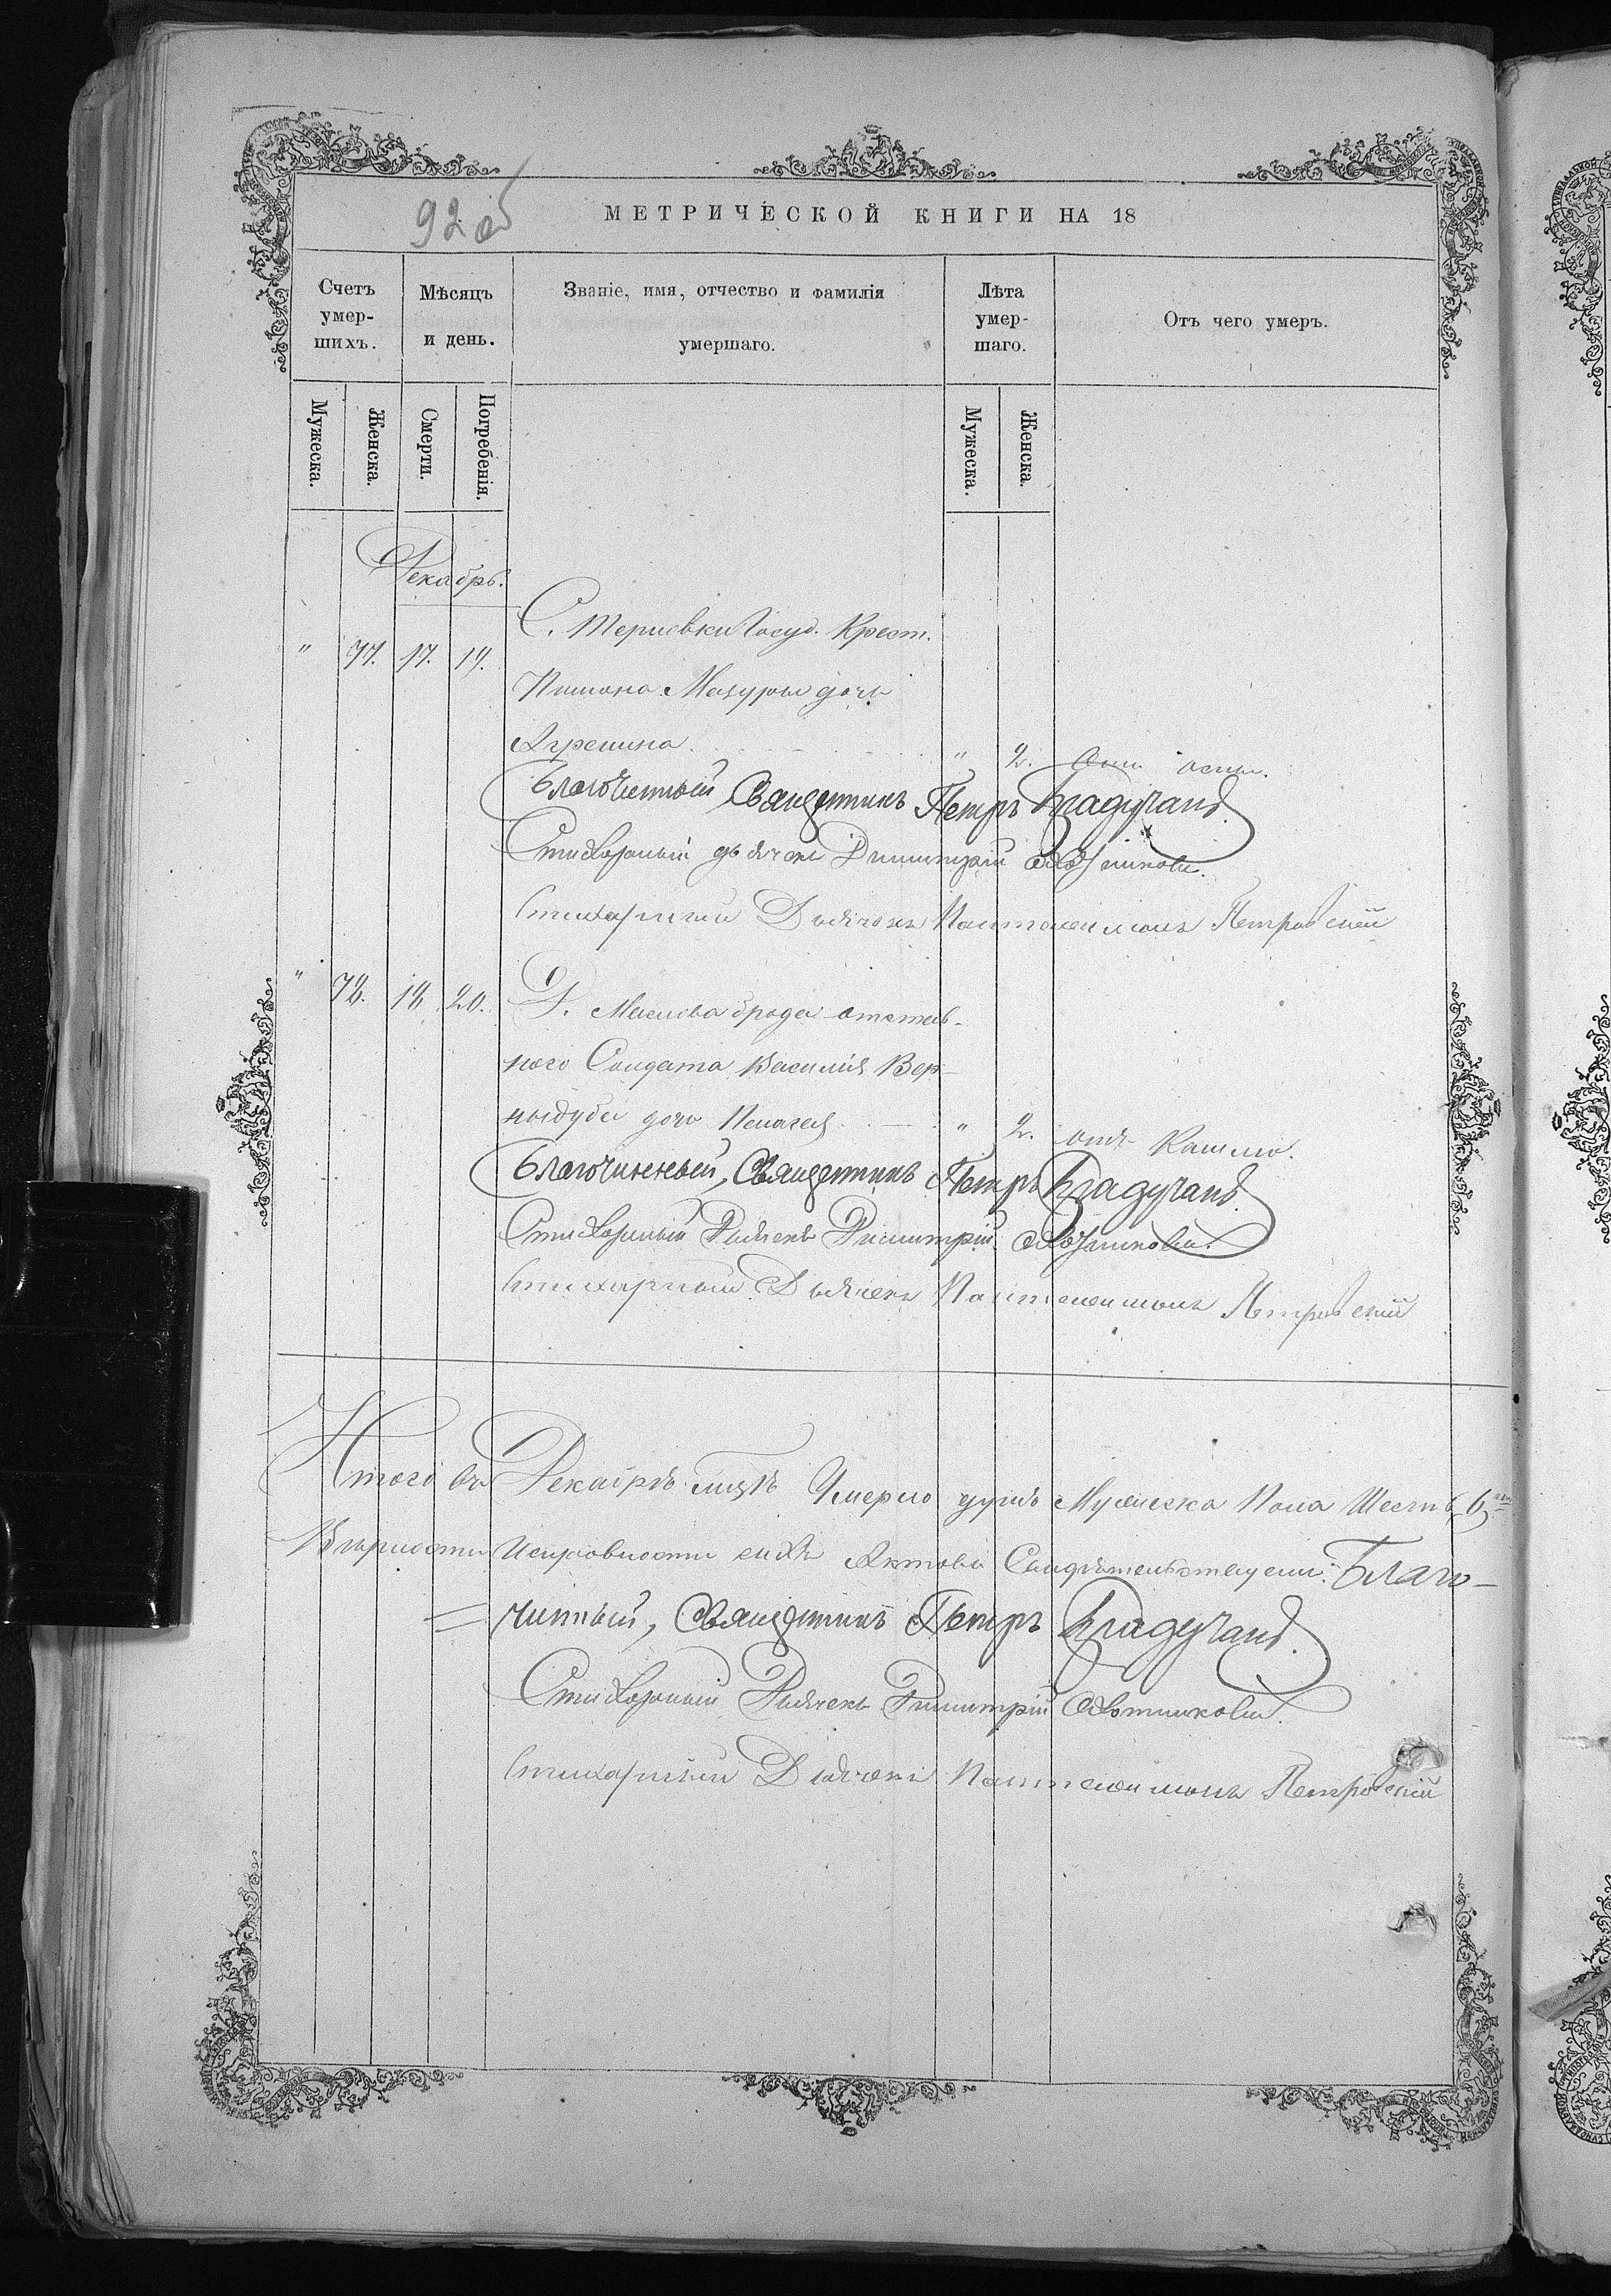 92 об
МЕТРИЧЕСКОЙ КНИГИ НА 18
Счетъ умер-шихъ.
Мѣсяцъ и день.
Званіе, имя, отчество и фамилія умершаго.
Лѣта умер-шаго.
Отъ чего умеръ.
Мужеска.
Женска.
Смерти.
Погребенія.
Мужеска.
Женска.
Декабрь.
С. Терновки Госуд. Крест.
" 77. 17. 19.
Мазуры дочь
Агрепина " 2. оспы.
Благочинный, Священникъ Петръ
Стихарный дьячекъ Димитрій
Стихарный Дьячокъ Пантелеимонъ Петровскій
" 78. 18. 20. Д. брода отстав-
ного Солдата Василія Вер-
нидуба дочь Пелагея " 2. отъ Кашлю.
Благочинный, Священникъ Петръ
Стихарный Дьячекъ Димитрій
Стихарный Дьячекъ Пантелеимонъ Петровскій
Итого въ Декабрѣ м-цѣ Умерло душъ Мужеска Пола Шесть, 6
Вѣрности Исправности сихъ Актовъ Свидѣтельствуемъ: Благо-
чинный, Священникъ Петръ
Стихарный Дьячекъ Димитрій
Стихарный Дьячекъ Пантелеимонъ Петровскій